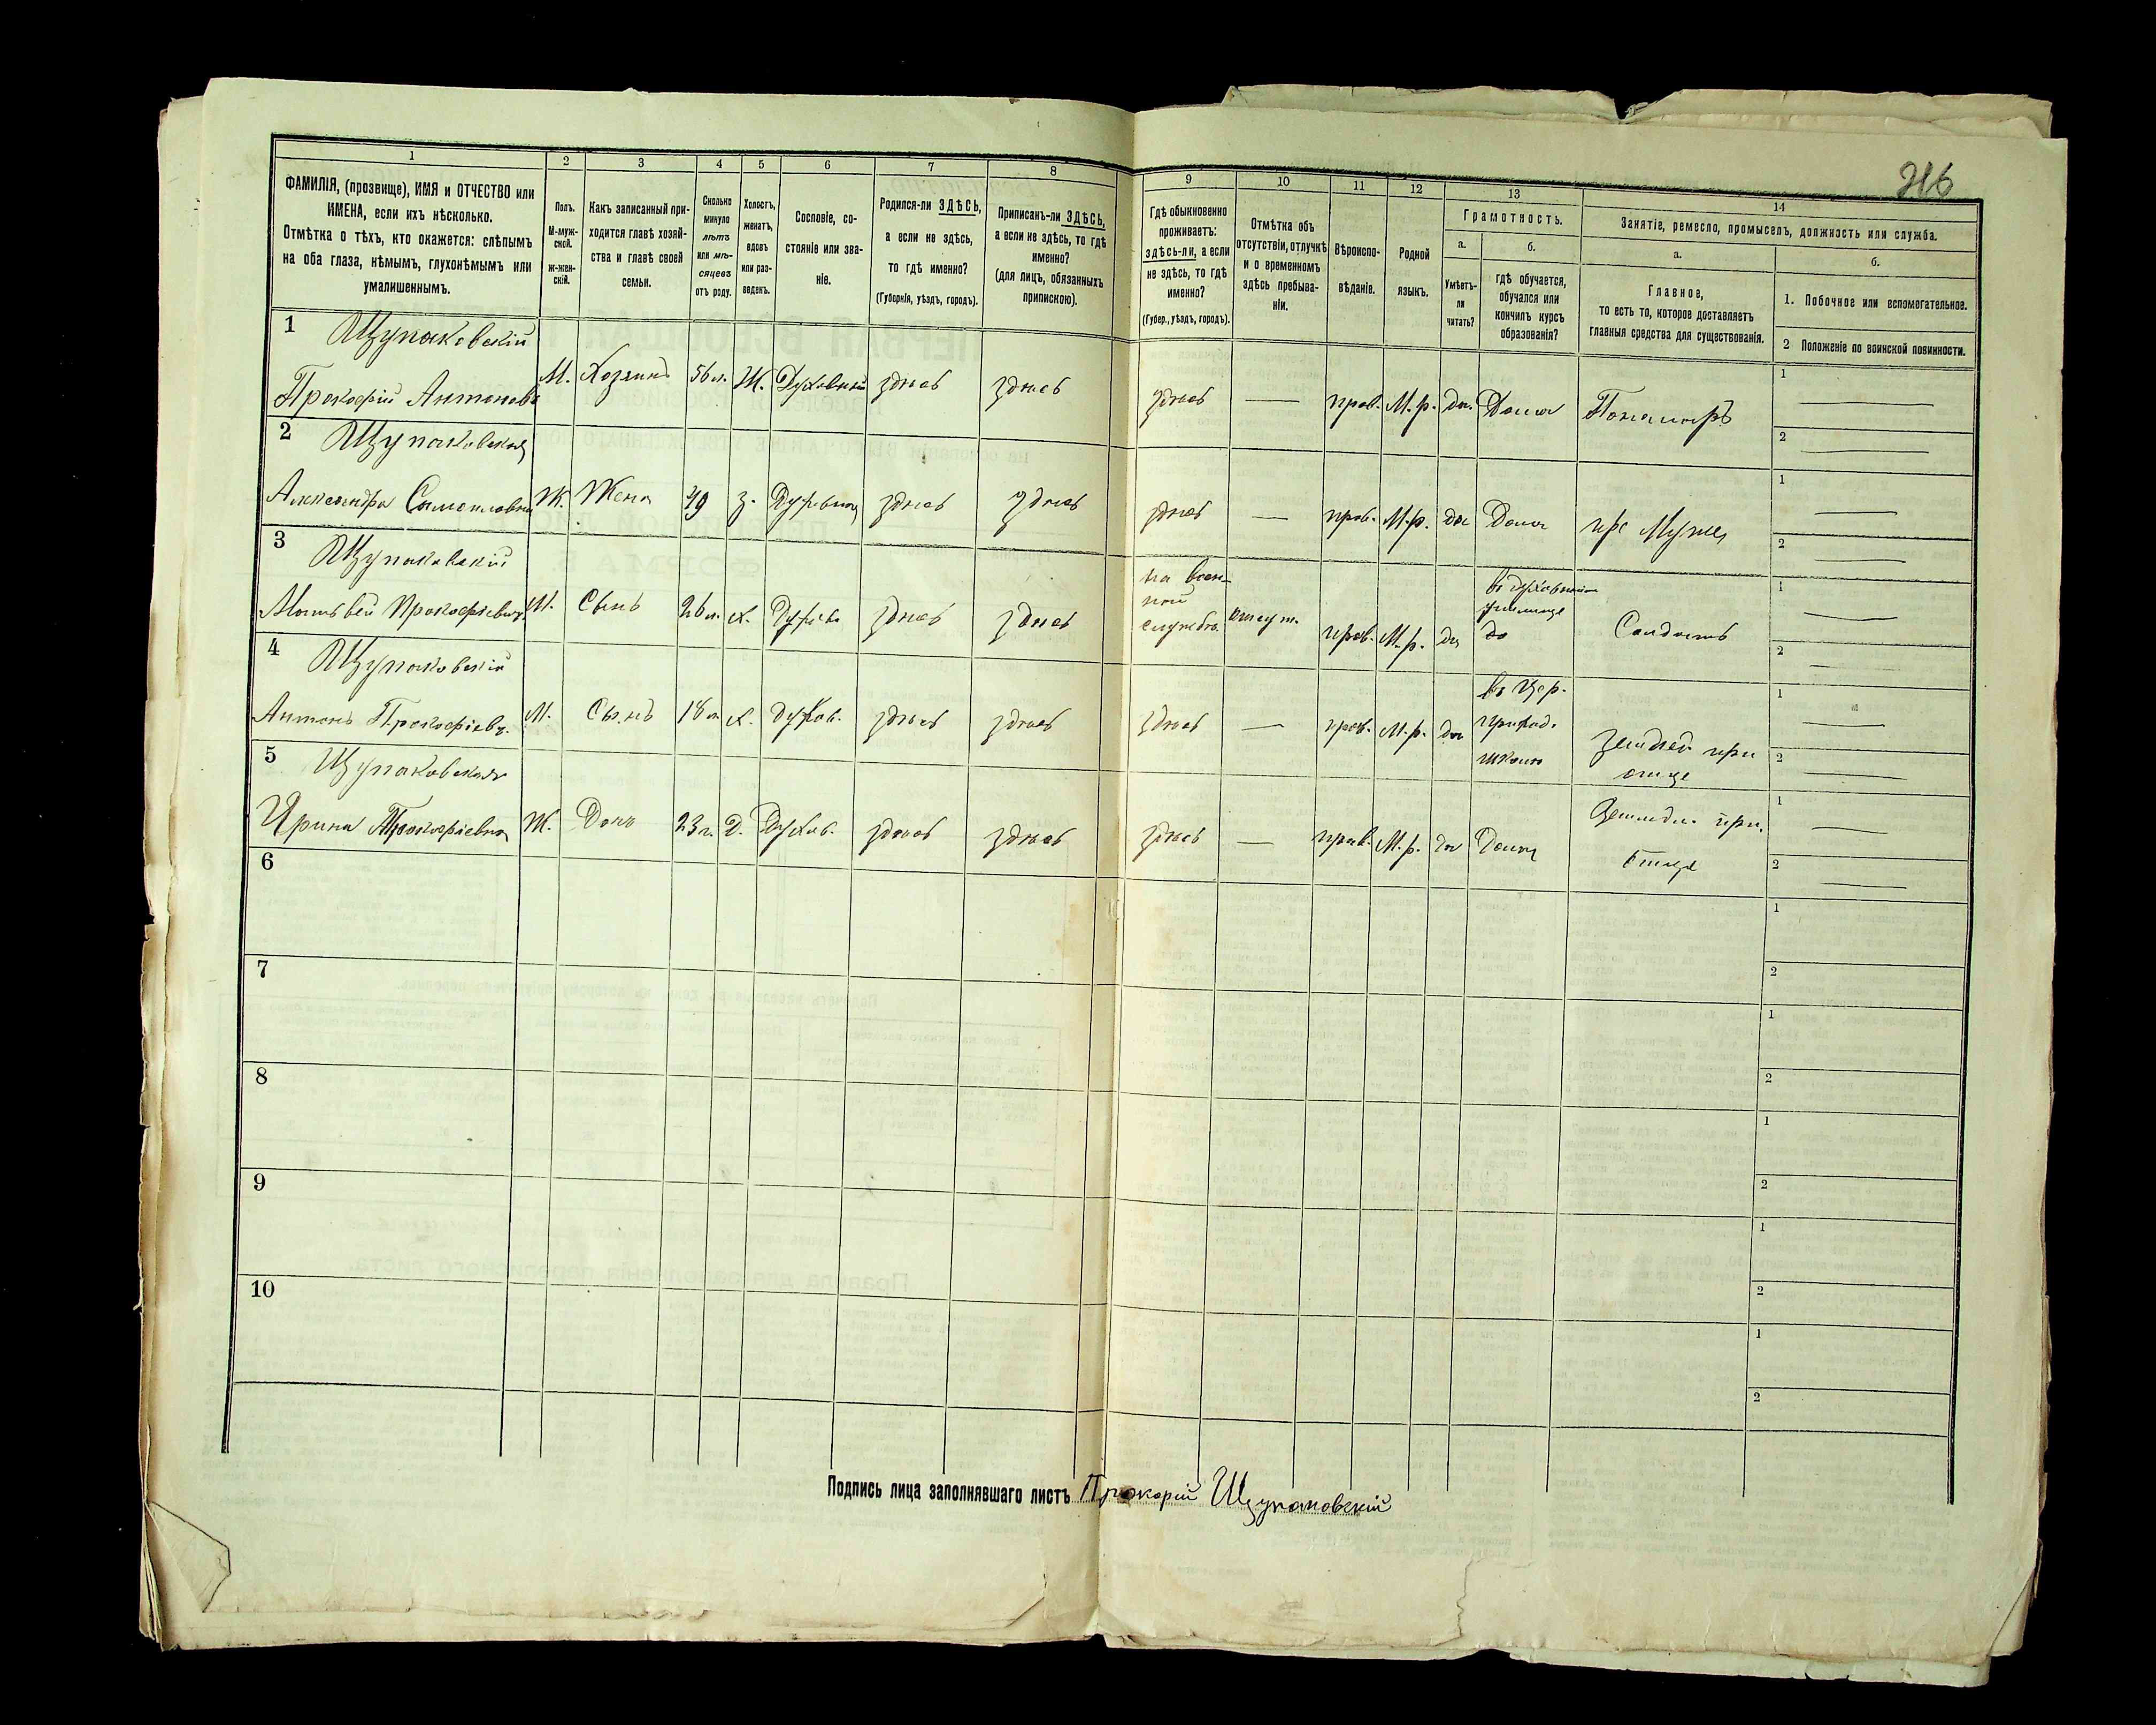 216
1
2
3
4
5
6
7
8
9
10
11
12
13
14
ФАМИЛІЯ, (прозвище), ИМЯ и ОТЧЕСТВО или
ИМЕНА, если ихъ нѣсколько.
Отмѣтка о тѣхъ, кто окажется: слѣпымъ
на оба глаза, нѣмымъ, глухонѣмымъ или
умалишеннымъ.
Полъ.
М-муж-
ской.
Ж-жен-
скій.
Какъ записанный при-
ходится главѣ хозяй-
ства и главѣ своей
семьи.
Сколько
минуло
лѣтъ
или мѣ-
сяцевъ
отъ роду.
Холостъ,
женатъ,
вдовъ
или раз-
веденъ.
Сословіе, со-
стояніе или зва-
ніе.
Родился-ли ЗДѢСЬ,
а если не здѣсь,
то гдѣ именно?
(Губернія, уѣздъ, городъ).
Приписанъ-ли ЗДѢСЬ,
а если не здѣсь, то гдѣ
именно?
(для лицъ, обязанныхъ
припискою).
Гдѣ обыкновенно
проживаетъ:
здѣсь-ли, а если
не здѣсь, то гдѣ
именно?
(Губер., уѣздъ, городъ).
Отмѣтка объ
отсутствіи, отлучкѣ
и о временномъ
здѣсь пребыва-
ніи.
Вѣроиспо-
вѣданіе.
Родной
языкъ.
Грамотность.
а.
Умѣетъ-
ли
читать?
б.
гдѣ обучается,
обучался или
кончилъ курсъ
образованія?
Занятіе, ремесло, промыселъ, должность или служба.
а.
Главное,
то есть то, которое доставляетъ
главныя средства для существованія.
б.
1. Побочное или вспомогательное.
2 Положеніе по воинской повинности.
1 Щупаковскій
Прокофій Антоновъ М. Хозяинъ 56 л. Ж. Духовный здѣсь здѣсь здѣсь — прав. М. р. да. Дома Понамарь
1 —
2 —
2 Щупаковская
Александра Самойловна Ж. Жена 49 з. Духовная здѣсь здѣсь здѣсь — прав. М. р. да Дома при Мужѣ
1 —
2 —
3 Щупаковскій
Матвѣй Прокофіевичъ М. Сынъ 26 л. х. Духов. здѣсь здѣсь
на воен-
ной
службѣ. отсут. прав. М. р. да
въ духовномъ
училищѣ
до
Солдатъ
1 —
2 —
4 Щупаковскій
Антонъ Прокофіевъ. М. Сынъ 18 л. х. духов. здѣсь здѣсь здѣсь — прав. М. р. да
въ Цер.
приход.
школѣ
при
отцѣ
1 —
2 —
5 Щупаковская
Ирина Прокофіевна Ж. Дочь 23 г. Д. Духов. здѣсь здѣсь здѣсь — прав. М. р. да Дома
при.
Отцѣ
1 —
2 —
6
1
2
7
1
2
8
1
2
9
1
2
10
1
2
Подпись лица заполнявшаго листъ Прокофій Щупаковскій